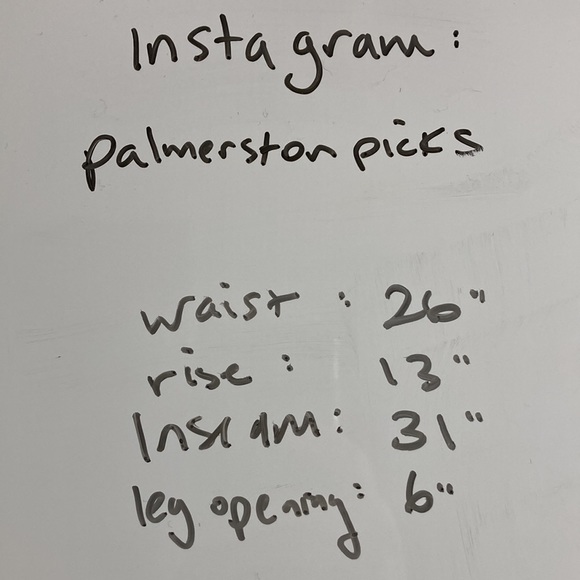 Instagram:
palmerston picks
waist: 26"
rise: 13"
Inseam: 31"
leg opening: 6"